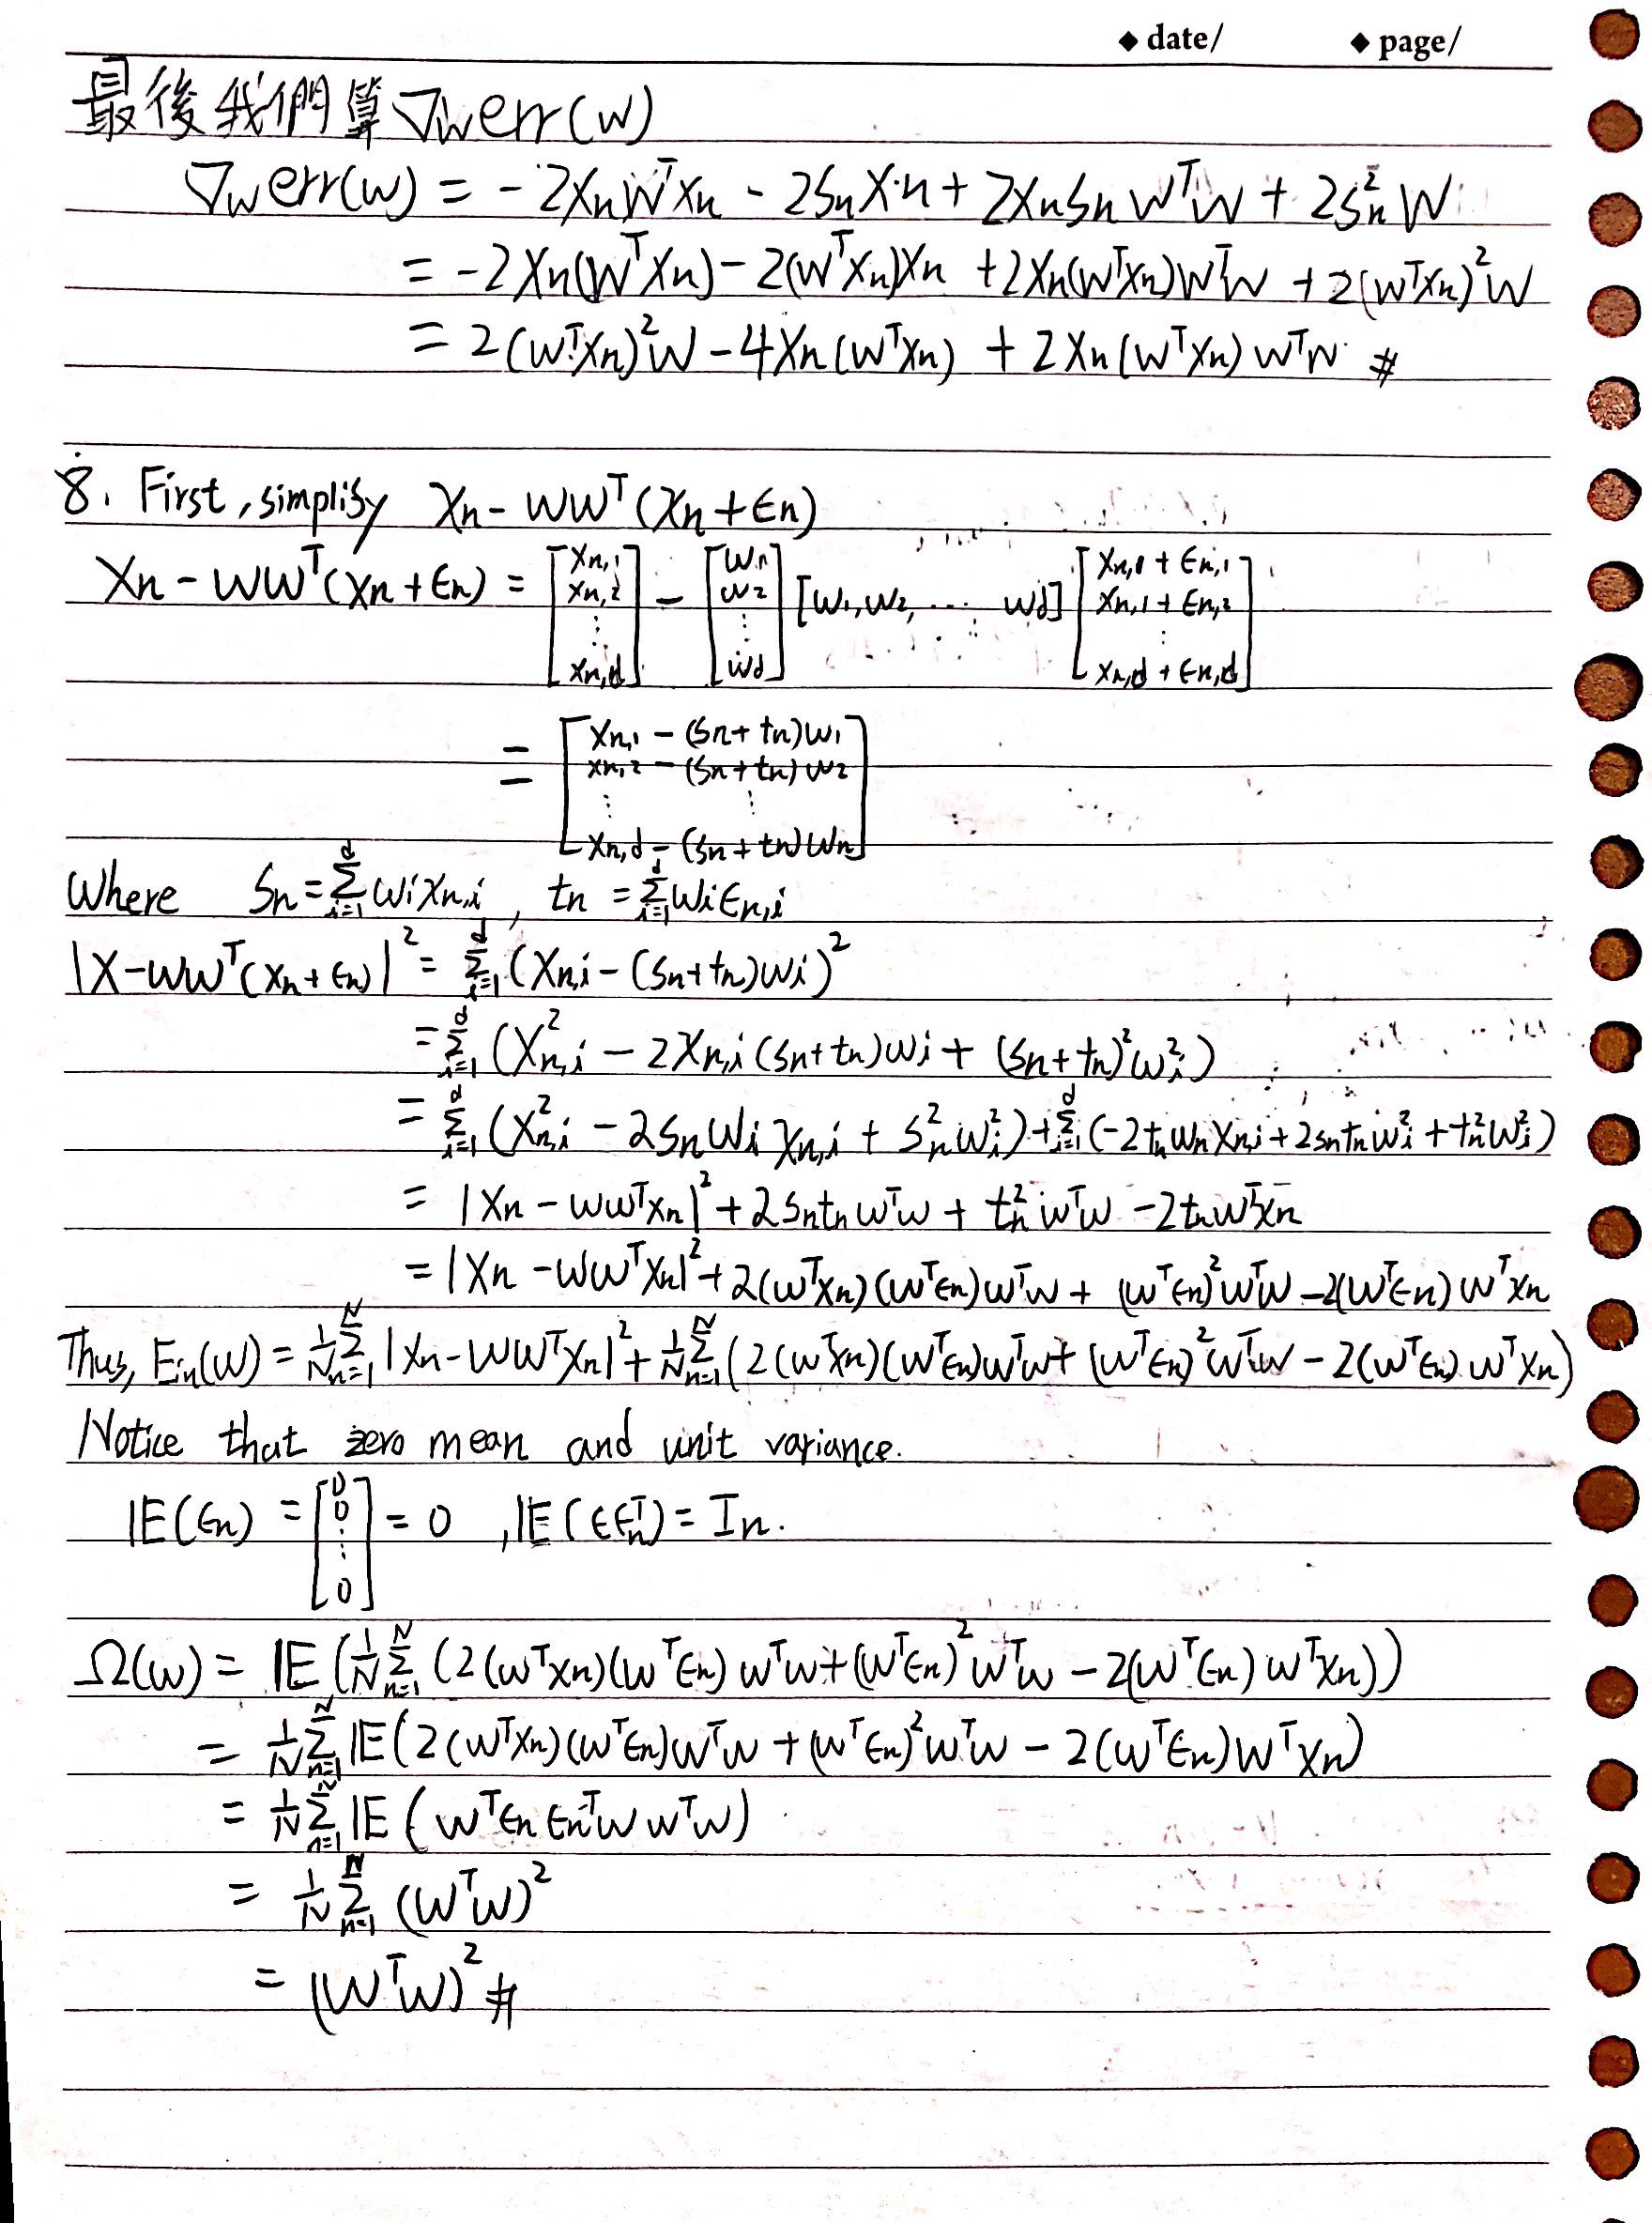 ◆ date/ ◆ page/
最後我們算 ∇w err(w)
∇w err(w) = -2XnWᵀXn - 2SnXn + 2XnSnWᵀW + 2Sn²W
= -2Xn(WᵀXn) - 2(WᵀXn)Xn + 2Xn(WᵀXn)WᵀW + 2(WᵀXn)²W
= 2(WᵀXn)²W - 4Xn(WᵀXn) + 2Xn(WᵀXn)WᵀW #
8. First, simplify Xn - WWᵀ(Xn + ϵn)
Xn - WWᵀ(Xn + ϵn) = [Xn,1 Xn,2 ⋮ Xn,d] - [W1 W2 ⋮ Wd] [W1, W2, ⋯ Wd] [Xn,1 + ϵn,1 Xn,1 + ϵn,2 ⋮ Xn,d + ϵn,d]
= [Xn,1 - (Sn + tn)W1 Xn,2 - (Sn + tn)W2 ⋮ ⋮ Xn,d - (Sn + tn)Wn]
Where Sn = Σᵢ₌₁ᵈ WiXn,i , tn = Σᵢ₌₁ᵈ Wiϵn,i
|X - WWᵀ(Xn + ϵn)|² = Σᵢ₌₁ᵈ (Xn,i - (Sn + tn)Wi)²
= Σᵢ₌₁ᵈ (Xn,i² - 2Xn,i(Sn + tn)Wi + (Sn + tn)²Wi²)
= Σᵢ₌₁ᵈ (Xn,i² - 2SnWiXn,i + Sn²Wi²) + Σᵢ₌₁ᵈ (-2tnWnXn,i + 2SntnWi² + tn²Wi²)
= |Xn - WWᵀXn|² + 2SntnWᵀW + tn²WᵀW - 2tnWᵀXn
= |Xn - WWᵀXn|² + 2(WᵀXn)(Wᵀϵn)WᵀW + (Wᵀϵn)²WᵀW - 2(Wᵀϵn)WᵀXn
Thus, Ein(W) = 1/N Σₙ₌₁ᴺ |Xn - WWᵀXn|² + 1/N Σₙ₌₁ᴺ (2(WᵀXn)(Wᵀϵn)WᵀW + (Wᵀϵn)²WᵀW - 2(Wᵀϵn)WᵀXn)
Notice that zero mean and unit variance.
𝔼(ϵn) = [0 0 ⋮ 0] = 0 , 𝔼(ϵϵnᵀ) = In.
Ω(w) = 𝔼(1/N Σₙ₌₁ᴺ (2(WᵀXn)(Wᵀϵn)WᵀW + (Wᵀϵn)²WᵀW - 2(Wᵀϵn)WᵀXn))
= 1/N Σₙ₌₁ᴺ 𝔼(2(WᵀXn)(Wᵀϵn)WᵀW + (Wᵀϵn)²WᵀW - 2(Wᵀϵn)WᵀXn)
= 1/N Σₙ₌₁ᴺ 𝔼(Wᵀϵnϵnᵀ W WᵀW)
= 1/N Σₙ₌₁ᴺ (WᵀW)²
= (WᵀW)² #